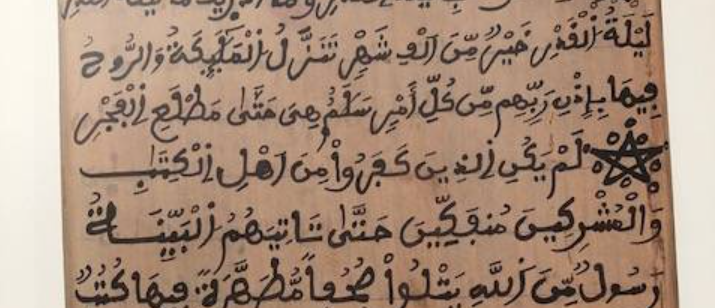 لَيْلَةُ اُلْقَدْرِ خَيْرٌ مِّنَ اَلْفِ شَهْرٍ تَنَزَّلُ اُلْمَلَٰٓئِكَةُ وَالرُّوحُ
فِيهَا بِإِذْنِ رَبِّهِم مِّن كُلِّ أَمْرٍ سَلَٰمٌ هِىَ حَتَّىٰ مَطْلَعِ اِلْفَجْرِ
لَمْ يَكُنِ اِلذِينَ كَفَرُواْ مِنَ اَهْلِ اِلْكِتَٰبِ
وَالْمُشْرِكِينَ مُنفَكِّينَ حَتَّىٰ تَاتِيَهُمُ اُلْبَيِّنَةُ
رَسُولٌ مِّنَ اَللَّهِ يَتْلُواْ صُحُفاً مُّطَهَّرَةً فِيهَا كُتُبٌ